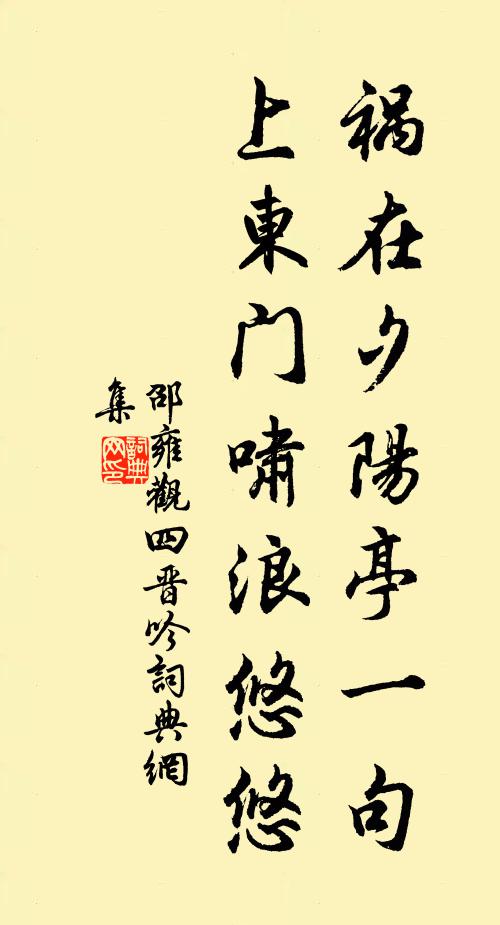 祸在夕陽亭一句
上東门嘯浪悠悠
邵雍觀四晋吟詞典網
集
詞典网印